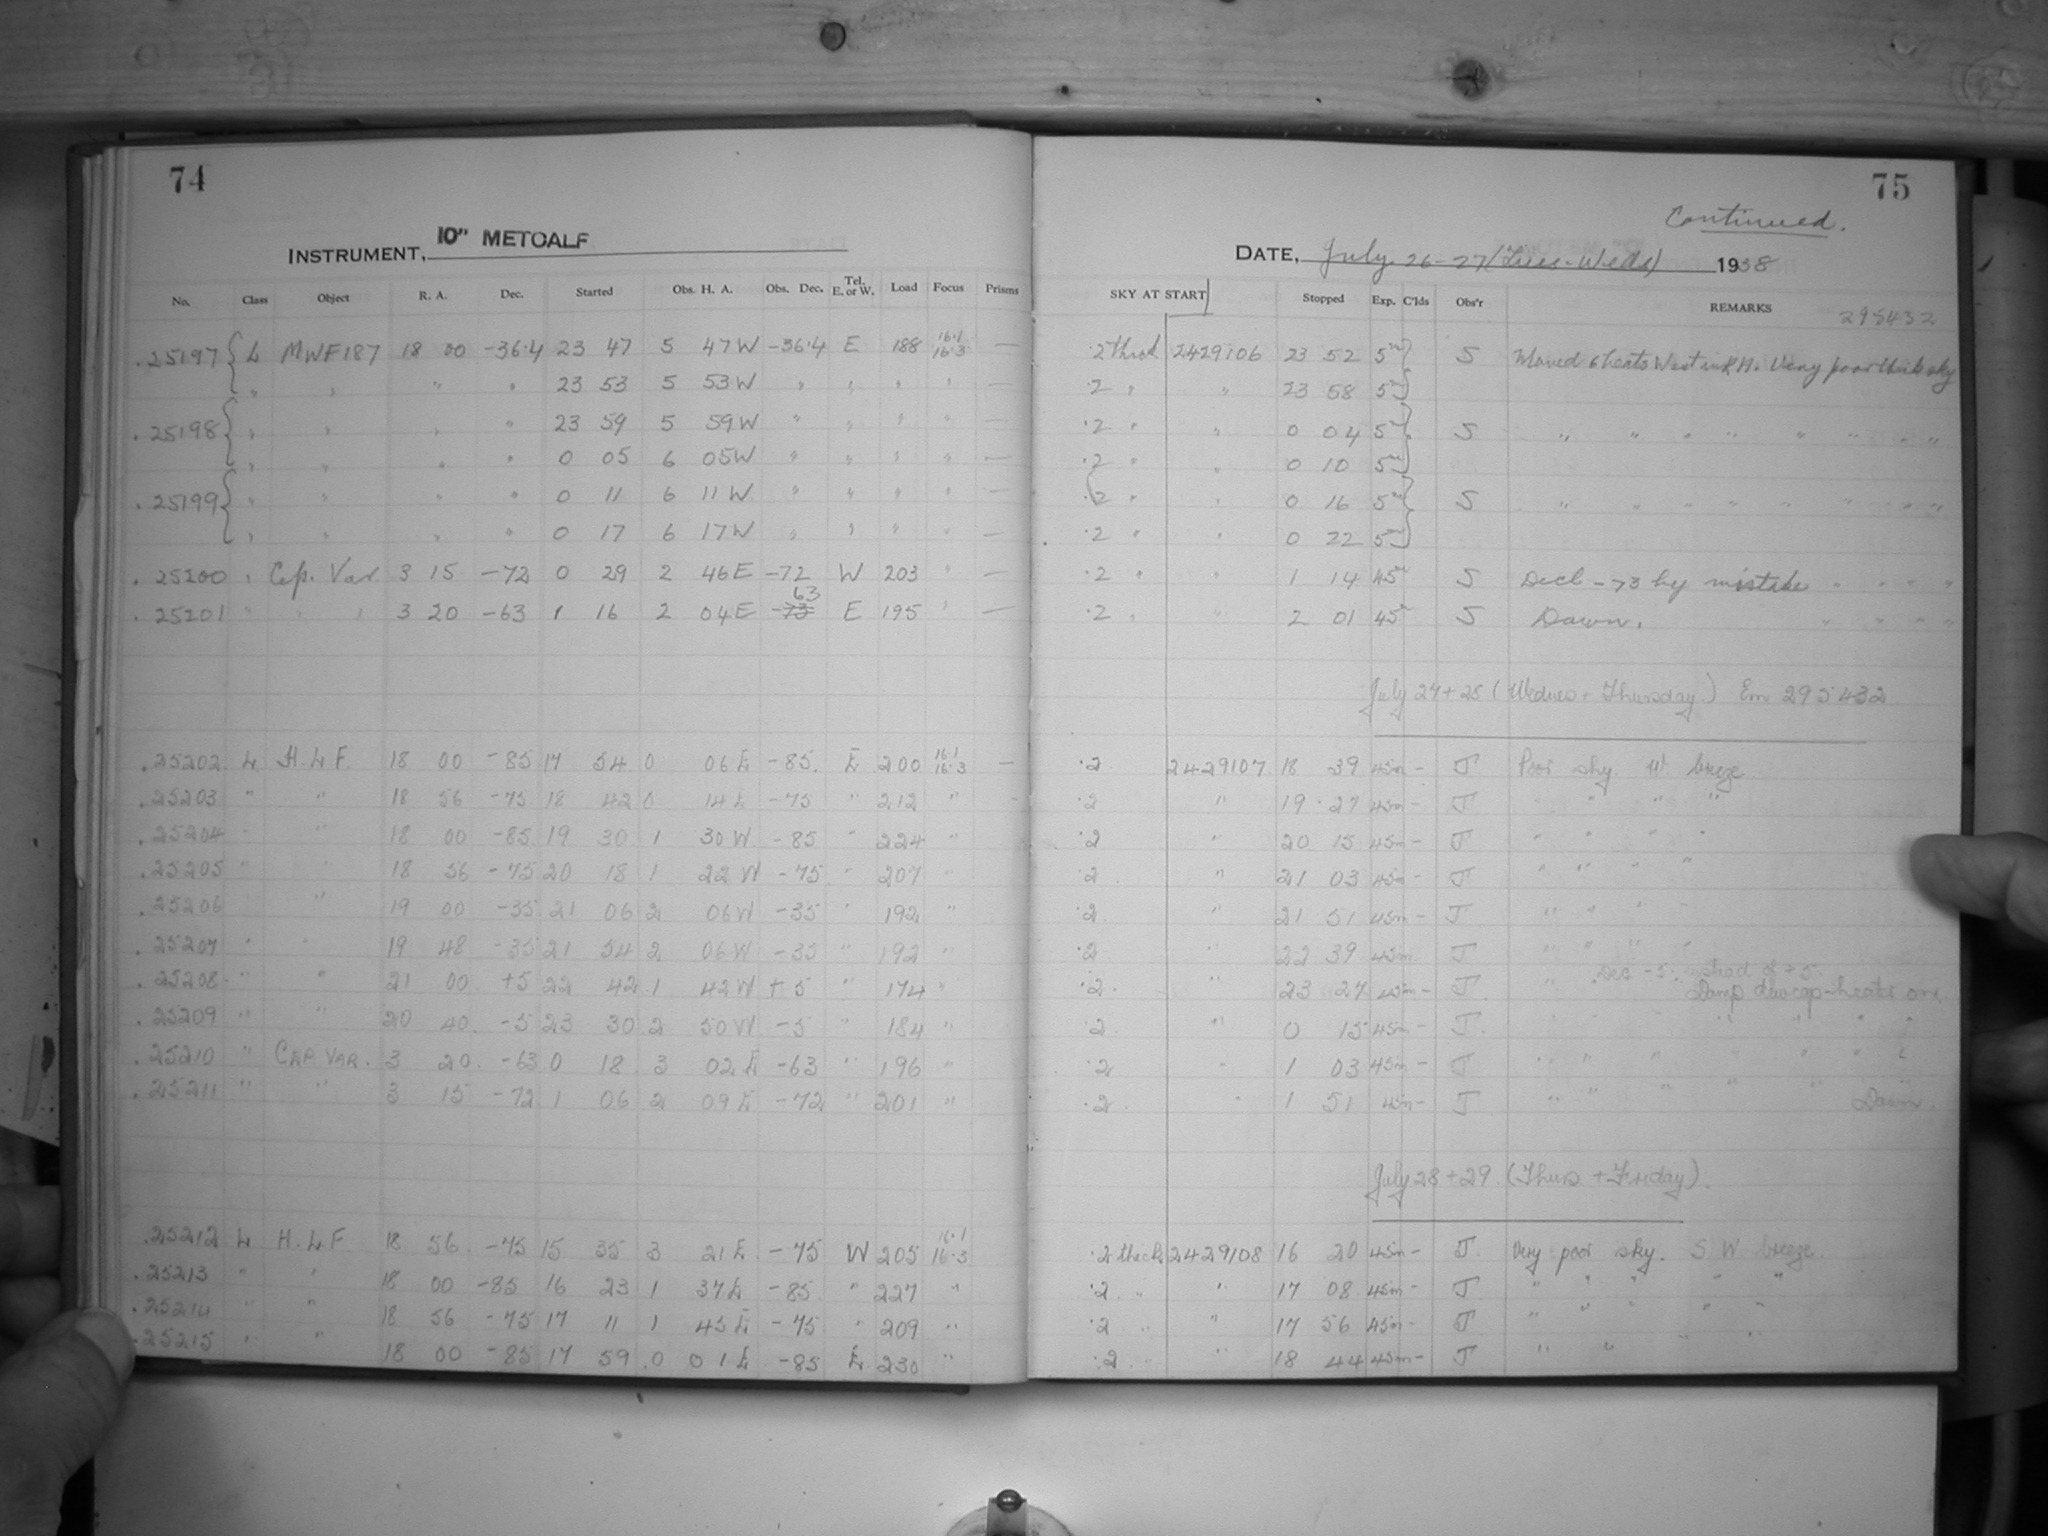 74
INSTRUMENT, 10" METCALF
No. Class Object R. A. Dec. Started Obs. H. A. Obs. Dec. Tel. E. or W. Load Focus Prisms
.25197 L MWF187 18 00 -36.4 23 47 5 47W -36.4 E 188 16.1 16.3 —
" " " " 23 53 5 53W " " " " —
.25198 " " " " 23 59 5 59W " " " " —
" " " " 0 05 6 05W " " " " —
.25199 " " " " 0 11 6 11W " " " " —
" " " " 0 17 6 17W " " " " —
.25200 " Cep. Var. 3 15 -72 0 29 2 46E -72 W 203 " —
.25201 " " " 3 20 -63 1 16 2 04E -73 63 E 195 " —
.25202 L H.L.F. 18 00 -85 17 54 0 06E -85. E 200 16.1 16.3 —
.25203 " " 18 56 -75 18 42 0 14E -75 " 212 " -
.25204 " " 18 00 -85 19 30 1 30W -85 " 224 "
.25205 " " 18 56 -75 20 18 1 22W -75 " 207 "
.25206 " " 19 00 -35 21 06 2 06W -35 " 192 "
.25207 " " 19 48 -35 21 54 2 06W -35 " 192 "
.25208 " " 21 00 +5 22 42 1 42W +5 " 174 "
.25209 " " 20 40 -5 23 30 2 50W -5 " 184 "
.25210 " CEP VAR. 3 20 -63 0 18 3 02E -63 " 196 "
.25211 " " 3 15 -72 1 06 2 09E -72 " 201 "
.25212 L H.L.F 18 56 -75 15 35 3 21E -75 W 205 16.1 16.3
.25213 " " 18 00 -85 16 23 1 37E -85 " 227 "
.25214 " " 18 56 -75 17 11 1 45E -75 " 209 "
.25215 " " 18 00 -85 17 59 0 01E -85 E 230 "
75
Continued.
DATE, July 26-27 (Tues-Weds) 1938
SKY AT START Stopped Exp. C'lds Obs'r REMARKS
295432
.2 thick 2429106 23 52 5m S Moved 6 heats West in R.H. Very poor thick sky
.2 " " 23 58 5m
.2 " " 0 04 5m S " " " " " " " "
.2 " " 0 10 5m
.2 " " 0 16 5m S " " " " " " " "
.2 " " 0 22 5m
.2 " " 1 14 45m S Decl -73 by mistake " " " "
.2 " " 2 01 45m S Dawn. " " " "
July 27+28 (Wednes + Thursday) Em 295432
.2 2429107 18 39 45m - J Poor sky. W. breeze
.2 " 19 27 45m - J " " " "
.2 " 20 15 45m - J " " " "
.2 " 21 03 45m - J " " " "
.2 " 21 51 45m - J " " " "
.2 " 22 39 45m - J " " " "
.2 " 23 27 45m - J " Dec -5. instead of +5. Damp dewcap-heater on.
.2 " 0 15 45m - J. " " " "
.2 " 1 03 45m - J " " " " " "
.2 " 1 51 45m - J " " " " Dawn.
July 28+29 (Thurs + Friday).
.2 thick 2429108 16 20 45m - J. Very poor sky. S W breeze.
.2 " " 17 08 45m - J " " " " "
.2 " " 17 56 45m - J " " " " "
.2 " " 18 44 45m - J " " " "